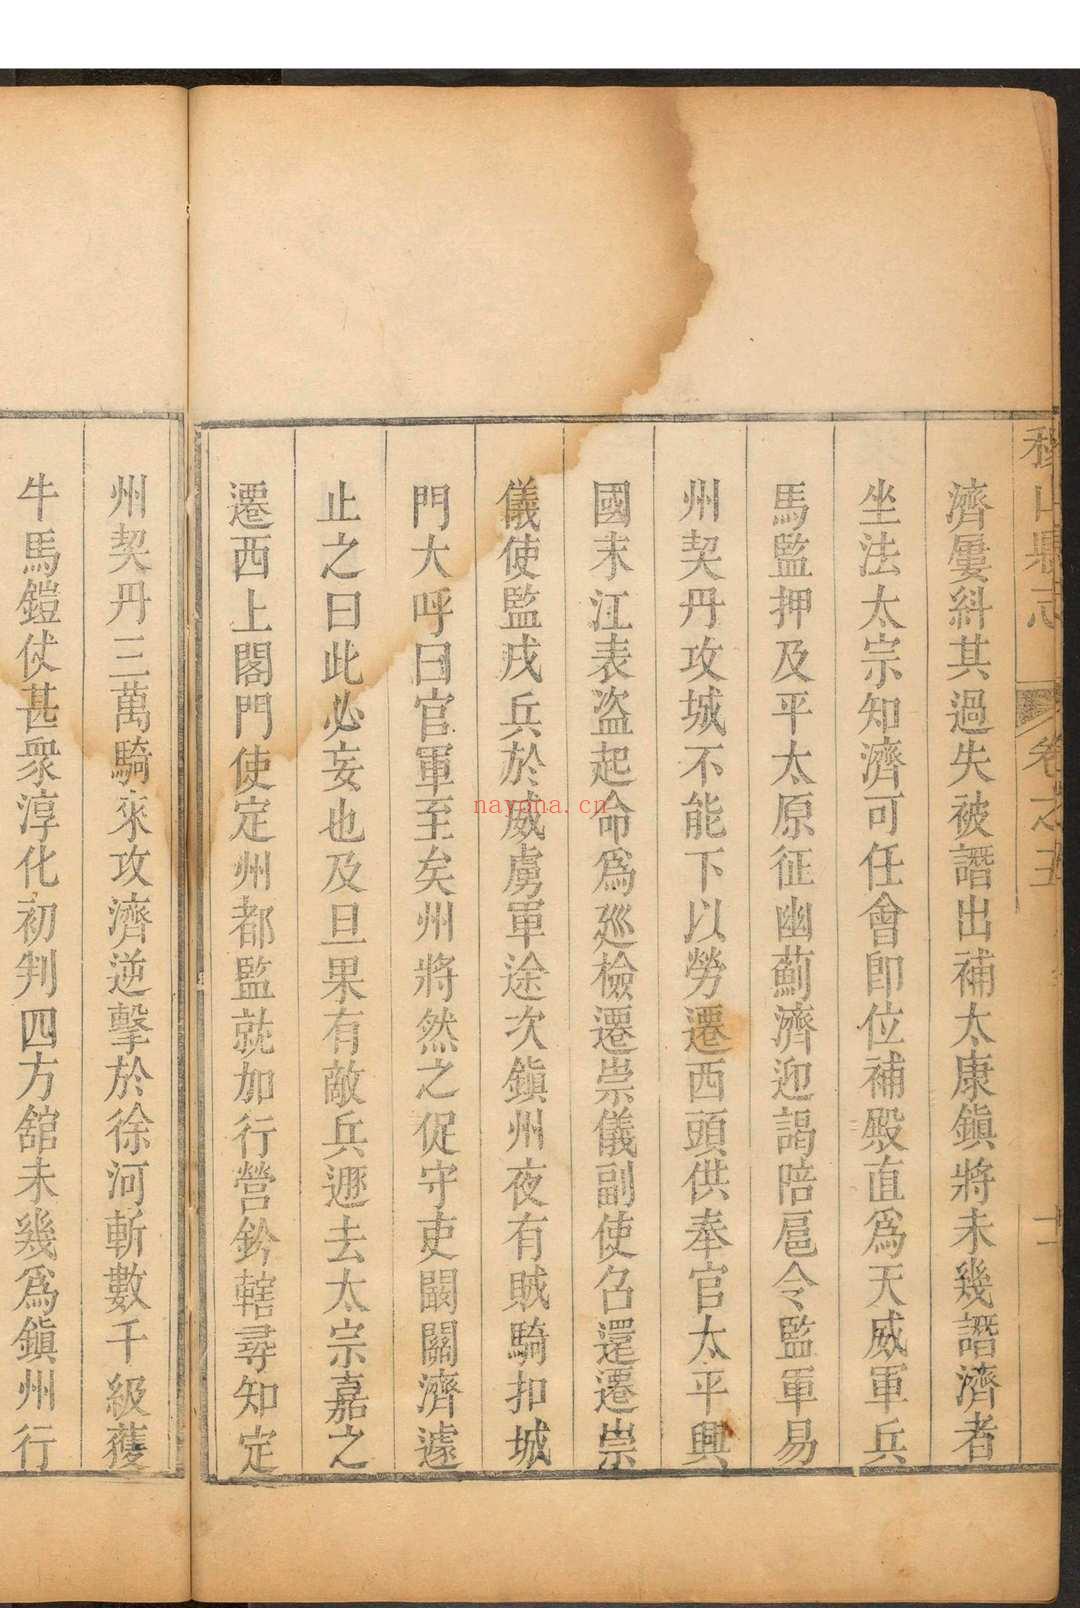 稷山縣志
卷之五
濟屢糾其過失被譖出補太康鎮將未幾譖濟者
坐法太宗知濟可任會即位補殿直為天威軍兵
馬監押及平太原征幽薊濟迎謁陪扈令監軍易
州契丹攻城不能下以勞遷西頭供奉官太平興
國末江表盜起命為廵檢遷崇儀副使召還遷崇
儀使監戍兵於威虜軍途次鎮州夜有賊騎扣城
門大呼曰官軍至矣州將然之促守吏闢關濟遽
止之曰此必妄也及旦果有敵兵遯去太宗嘉之
遷西上閣門使定州都監就加行營鈐轄尋知定
州契丹三萬騎來攻濟逆擊於徐河斬數千級獲
牛馬鎧仗甚衆淳化初判四方舘未幾為鎮州行
nayona.cn